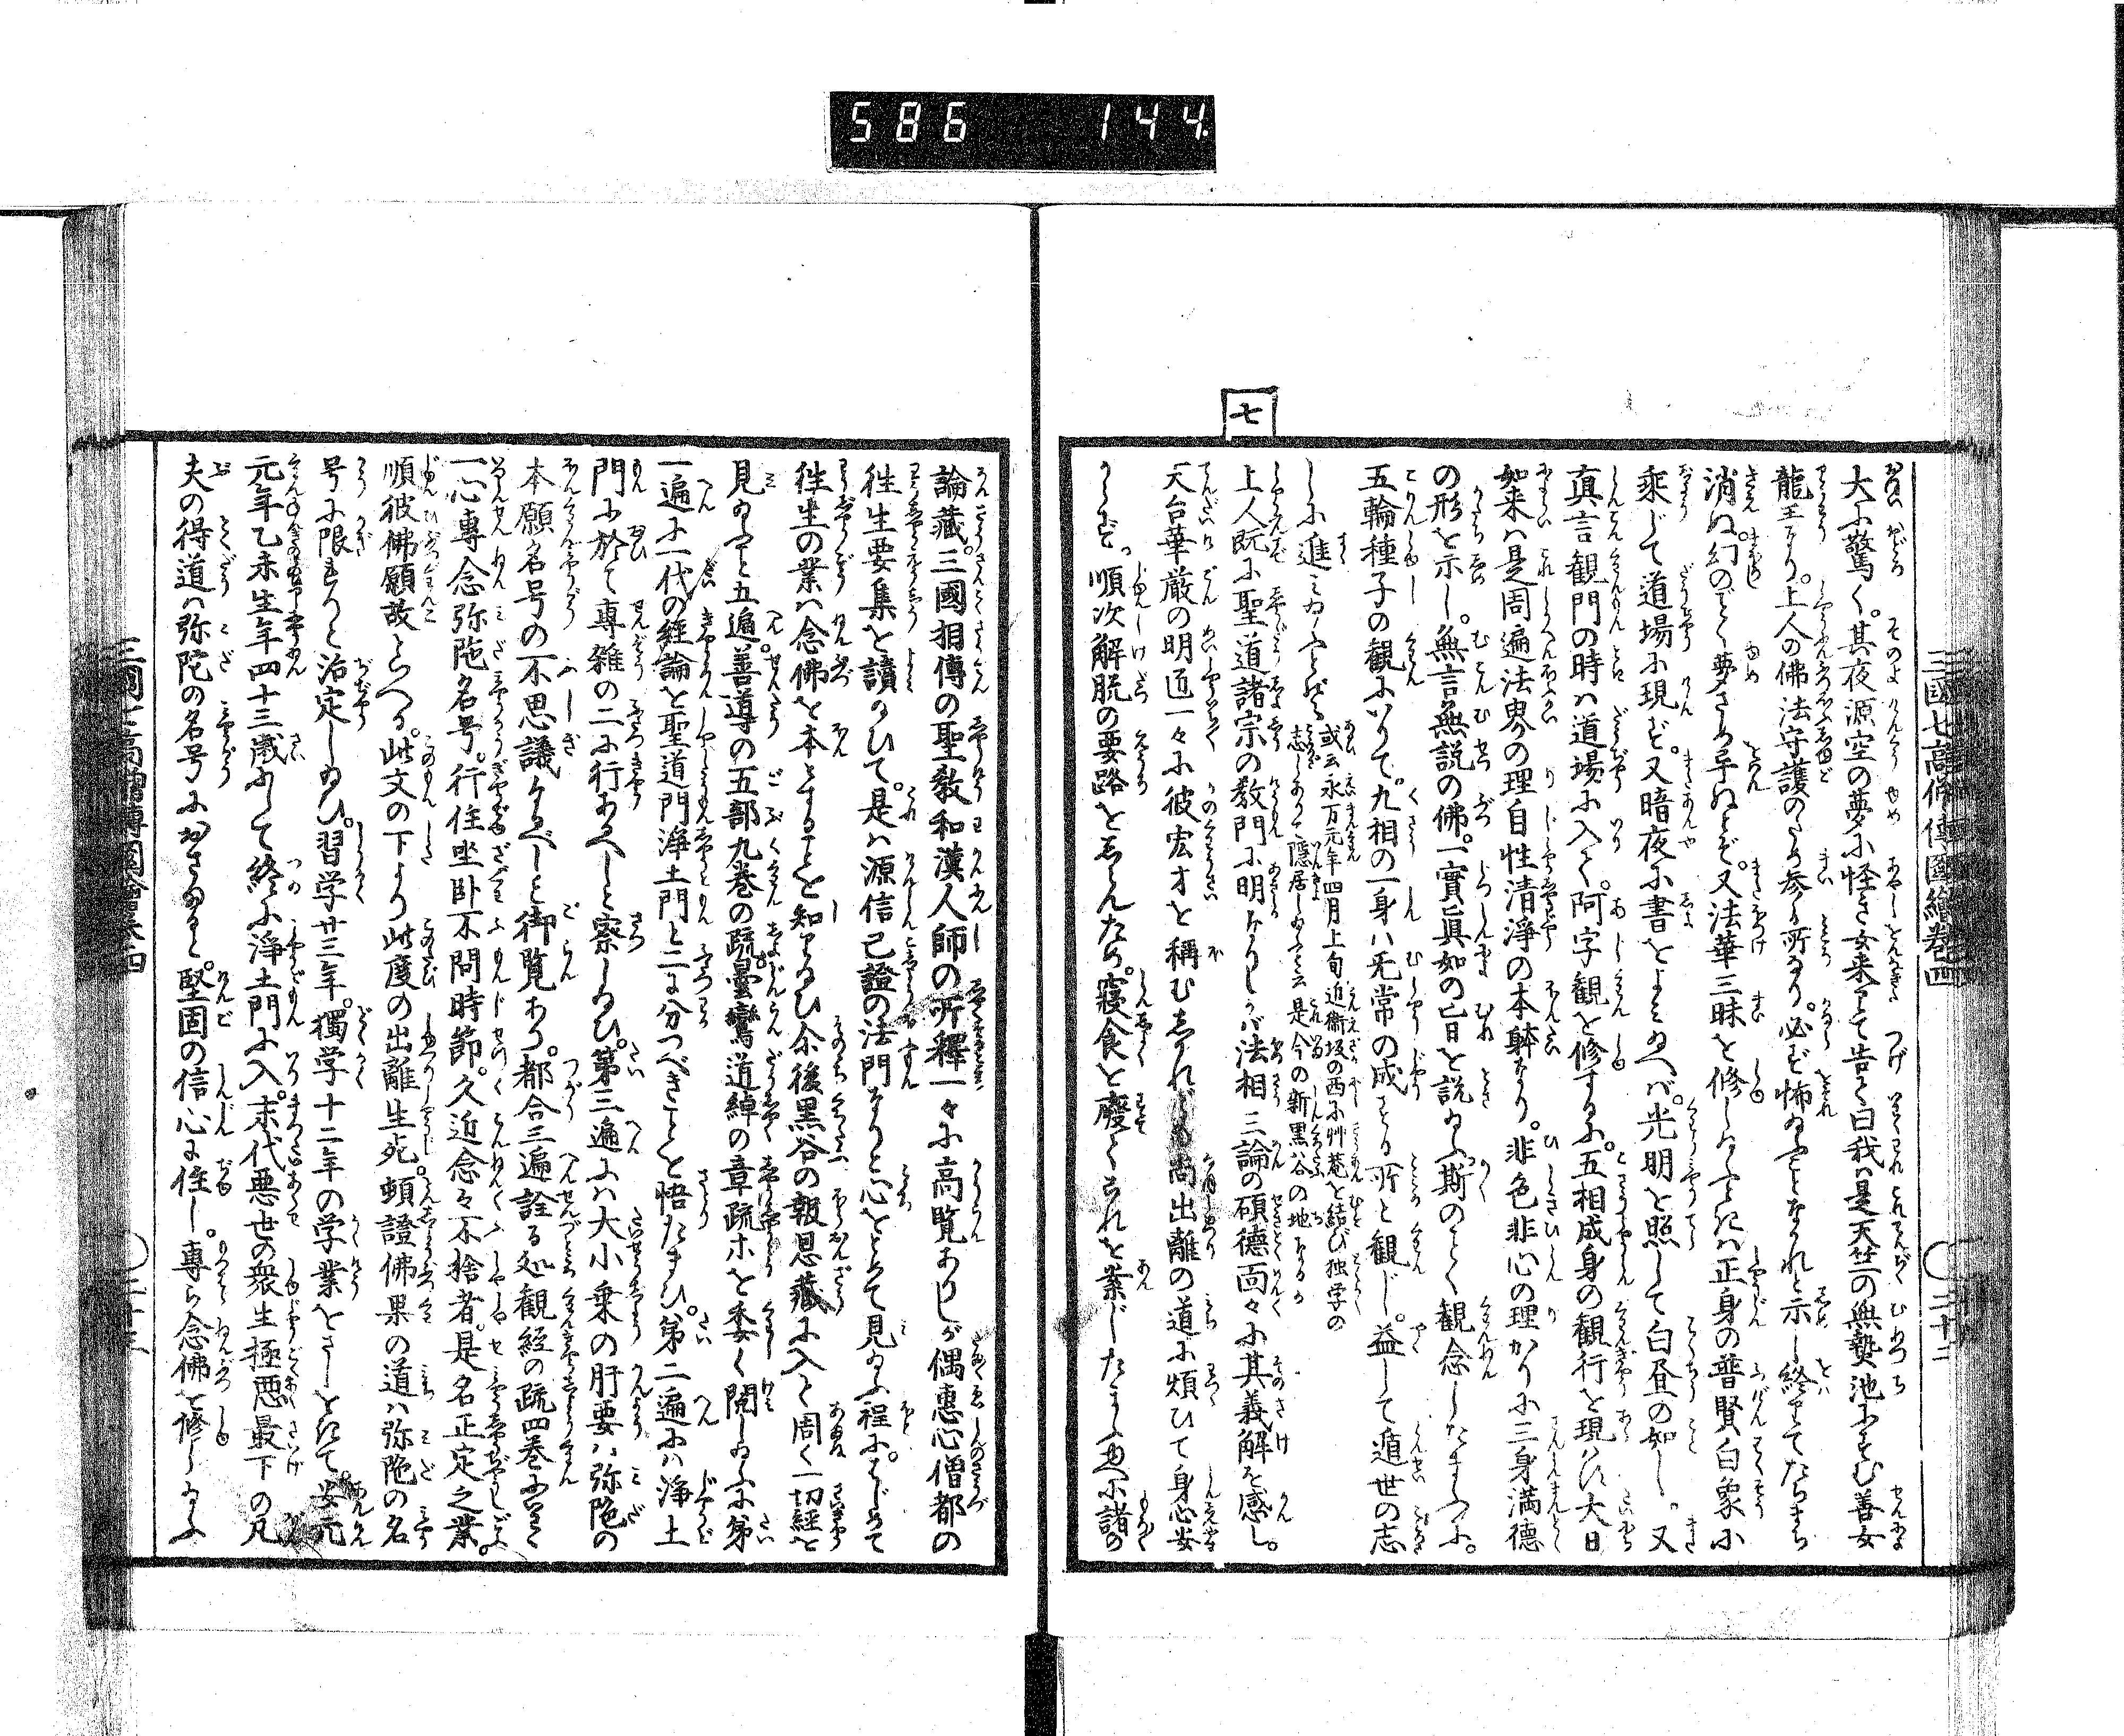 586 144
三國七高僧傳圖繪卷四
大に驚く。其夜源空の夢に怪き女来りて告て曰我は是天竺の無熱池にすむ善女
龍王なり。上人の佛法守護のため参る所なり。必ず怖給ふことなかれと示し終てたちまち
消ぬ。幻のごとく夢さめ畢ぬとぞ。又法華三昧を修し給ふときは正身の普賢白象に
乗じて道場に現ず。又暗夜に書をよみ給へば。光明を照して白昼の如し。又
真言観門の時は道場に入て。阿字観を修するに。五相成身の観行を現はす大日
如来は是周遍法界の理自性清浄の本躰なり。非色非心の理かりに三身満徳
の形を示し。無言無説の佛。一實真如の旨を説給ふ斯のごとく観念したまふに。
五輪種子の観にいりて。九相の一身は无常の成する所と観じ。益して遁世の志
しに進み給ふとぞ
或云永万元年四月上旬近衛坂の西に艸菴を結び独学の
志しありて隠居し給ふと云是今の新黒谷の地なるか
七
上人既に聖道諸宗の教門に明なりしかば法相三論の碩德面々に其義解を感し。
天台華厳の明匠一々に彼宏才を稱むしかれども尚出離の道に煩ひて身心安
からず。順次解脱の要路をしらんため。寝食を廢てられを案じたまふ思へ諸の
論藏。三國相傳の聖教和漢人師の所釋一々に高覧ありしが偶惠心僧都の
徃生要集を讀給ひて。是は源信己證の法門なりと心をとめて見給ふ程に。はじめて
徃生の業は念佛を本とすることを知り給ひ尓後黒谷の報恩藏に入て周く一切經を
見給ふこと五遍。善導の五部九巻の疏曇鸞道綽の章疏ホを委く閲し給ふに第
一遍に一代の経論を聖道門浄土門と二に分つべきことを悟たまひ。第二遍には浄土
門に於て専雑の二に行あるべしと察し給ひ。第三遍には大小乗の肝要は弥陀の
本願名号の不思議なるべしと御覧あり。都合三遍詮る処観経の疏四巻に至て
一心専念弥陀名号。行住坐卧不問時節。久近念々不捨者。是名正定之業。
順彼佛願故といへる。此文の下より此度の出離生死。頓證佛果の道は弥陀の名
号に限るべしと治定し給ひ。習学廿三年。獨学十二年の学業をさしをきて。安元
元年乙未生年四十三歳にして終に浄土門に入。末代悪世の衆生極悪最下の凡
夫の得道は弥陀の名号にかぎるなると。堅固の信心に住し。専ら念佛を修し給ふ
三國七高僧傳圖繪卷四